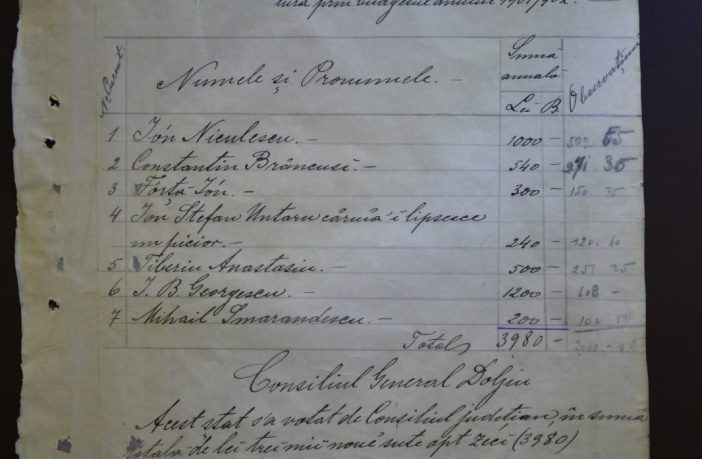 prin budgetul anului 1901/902.
Nr. Curent
Numele și Pronumele. —
Suma
anuala
Lei B.
Observațiuni
1 Ión Niculescu. — 1000 — 55
2 Constantin Brâncusi. — 540 — 971 35
3 Fórtă Ión. — 300 — 150 35
4 Ión Stefan Untaru căruia-i lipsesce
un picior. — 240 — 120 60
5 Tiberiu Anastasiu. — 500 — 251 25
6 I. B. Georgescu. — 1200 — 603 —
7 Mihail Smarandescu. — 200 — 100 50
Total 3980 —
Consiliul General Doljiu
Acest stat s'a votat de Consiliul județian, in suma
totală de lei trei mii noue sute opt zeci (3980)